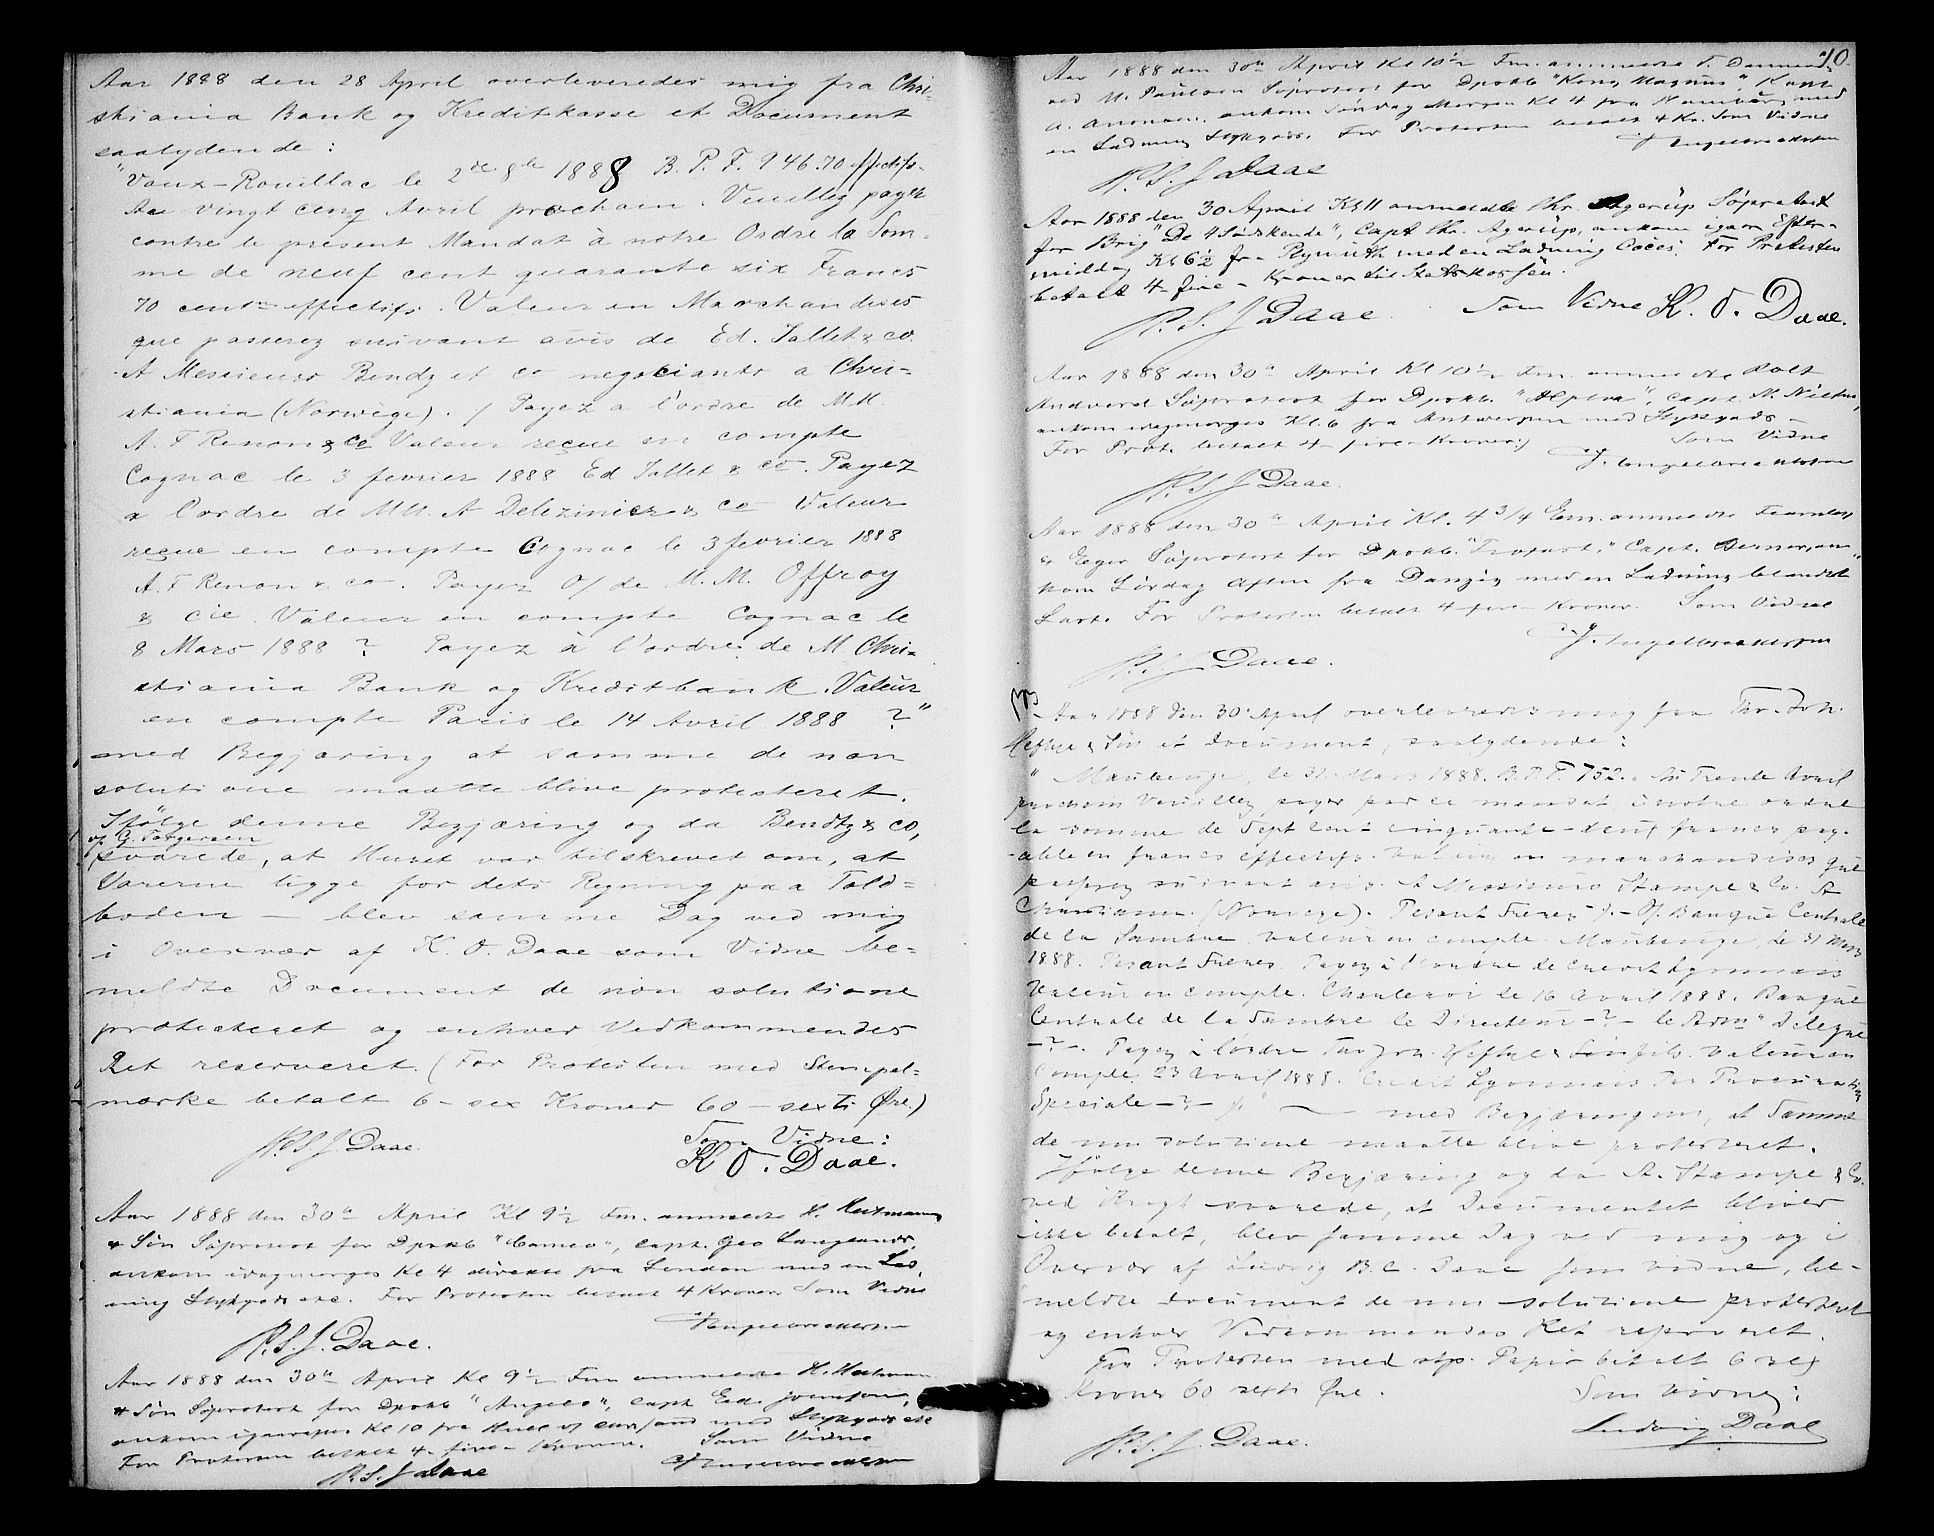 Aar 1888 den 28 April overleveredes mig fra Chri-
stiania Bank og Kreditkasse et Document
saalydende:
"Vaux-Rouillac le 2 1888 B. P. F. 946.70 effectifs.
Au vingt cinq Avril prochain. Veuillez payer
contre le présent Mandat à notre Ordre la Som-
me de neuf cent quarante six Francs
70 cent effectifs. Valeur en Marchandises
que passerez suivant avis de Ed. Jallet & co.
A Messieurs Bendz et co negociants a Chri-
stiania (Norwège). / Payez a l'ordre de M.M.
A. F Renon & Co Valeur reçue en compte
Cognac le 3 fevrier 1888 Ed Jallet & co. Payez
a l'ordre de MM. A Delezinier & co Valeur
reçue en compte Cognac le 3 fevrier 1888
A. F Renon & co. Payez O/ de M. M. Offroy
& cie. Valeur en compte Cognac le
8 Mars 1888 ? Payez à l'ordre de M. Chri-
stiania Bank og Kreditbank. Valeur
en compte Paris le 14 Avril 1888 ?"
med Begjæring at samme de non
solutione maatte blive protesteret.
Ifølge denne Begjæring og da Bendtz & co,
v/ G. Torgersen
svarede, at Huset var tilskrevet om, at
Varerne ligge for dets Regning paa Told-
boden — blev samme Dag ved mig
i Overvær af K. O. Daae som Vidne be-
meldte Document de non solutione
protesteret og enhver Vedkommendes
Ret reserveret. (For Protesten med Stempel-
mærke betalt 6 - sex Kroner 60 - sexti Øre.)
P. S. J Daae. Som Vidne:
K O. Daae.
Aar 1888 den 30te April Kl 9½ Fm. anmeldte H. Heitmann
& Søn Søprotest for Dpskb "Cameo", Capt. Geo
ankom idagmorges Kl 4 direkte fra London med en Lad-
ning Stykgods etc. For Protesten betalt 4 Kroner. Som Vidne
P. S. J. Daae. Engelbrechtsen
Aar 1888 den 30te April Kl 9½ Fm anmeldte H. Heitmann
& Søn Søprotest for Dpskb "Angelo", Capt Ed.
ankom igaaraftes Kl 10 fra Hull med Stykgods etc
For Protesten betalt 4 - fire - Kroner. Som Vidne
P. S. J Daae Engelbrechtsen
10.
Aar 1888 den 30te April Kl 10½ Fm. anmeldte
ved M. Paulsen Søprotest for Dpskb "Kong Magnus", Capt
ankom Søndag Morgen Kl 4 fra Hamburg med
en Ladning Stykgods. For Protesten betalt 4 Kr. Som Vidne
P. S. J Daae Engelbrechtsen
Aar 1888 den 30 April Kl 11 anmeldte Chr. Agerup Søprotest
for Brig "De 4 Sødskende", Capt Chr. Agerup, ankom igaar Efter-
middag Kl 6½ fra Plymuth med en Ladning Cocos. For Protesten
betalt 4 - fire - Kroner til Statskassen.
P. S. J Daae. Som Vidne K. O. Daae.
Aar 1888 den 30te April Kl 10½ Fm. anmeldte Rolf
Andvord Søprotest for Dpskb. Capt. M. Nielsen,
ankom idagmorges Kl. 6 fra Antwerpen med Stykgods -
For Prot. betalt 4 - fire - Kroner.) Som Vidne
P. S. J Daae. Engelbrechtsen
Aar 1888 den 30te April Kl. 4¾ Em. anmeldte Fearnley
& Eeger Søprotest for Dpskb. Capt. an-
kom Lørdag Aften fra Danzig med en Ladning blandet
Last. For Protesten betalt 4 - fire - Kroner. Som Vidne
P. S. J Daae. Engelbrechtsen
Aar 1888 den 30 April overleveredes mig fra Thr. Joh.
Heftye & Søn et document, saalydende:
"Maubeuge, le 31 Mars 1888. B.P.F. 752. Au Trente Avril
prochain Veuillez payer par ce mandat, à notre ordre
la somme de Sept cent cinquante-deux francs pay-
able en francs effectifs. Valeur en marchandises que
passerez suivant avis. A Messieurs Stampe & Co. A
Christiania. (Norvege). Pesant Freres /. - O/. Banque Centrale
de la Sambre valeur en compte. Maubeuge, le 31 Mars
1888. Pesant Freres. Payez à l'ordre de Credit Lyonnais
Valeur en compte. Charleroi le 16 Avril 1888. Banque
Centrale de la Sambre le Directeur -?- le Délégué
-?-. Payez à l'ordre Tho Joh. Heftye & Søn fils. valeur en
compte. 23 Avril 1888. Credit Lyonnais Par Procuration
Speciale -?- /." — med Begjæring om, at Samme
de non solutione maatte blive protesteret.
Ifølge denne Begjæring og da A. Stampe & Co.
ved svarede, at Documentet bliver
ikke betalt, blev samme Dag ved mig og i
Overvær af Ludvig B.C. Daae som vidne, be-
meldte document de non solutione protesteret
og enhver Vedkommendes Ret reserveret.
For Protesten med stp. Papir betalt 6 sex
Kroner 60 sexti Øre. Som vidne:
P. S. J. Daae. Ludvig Daae